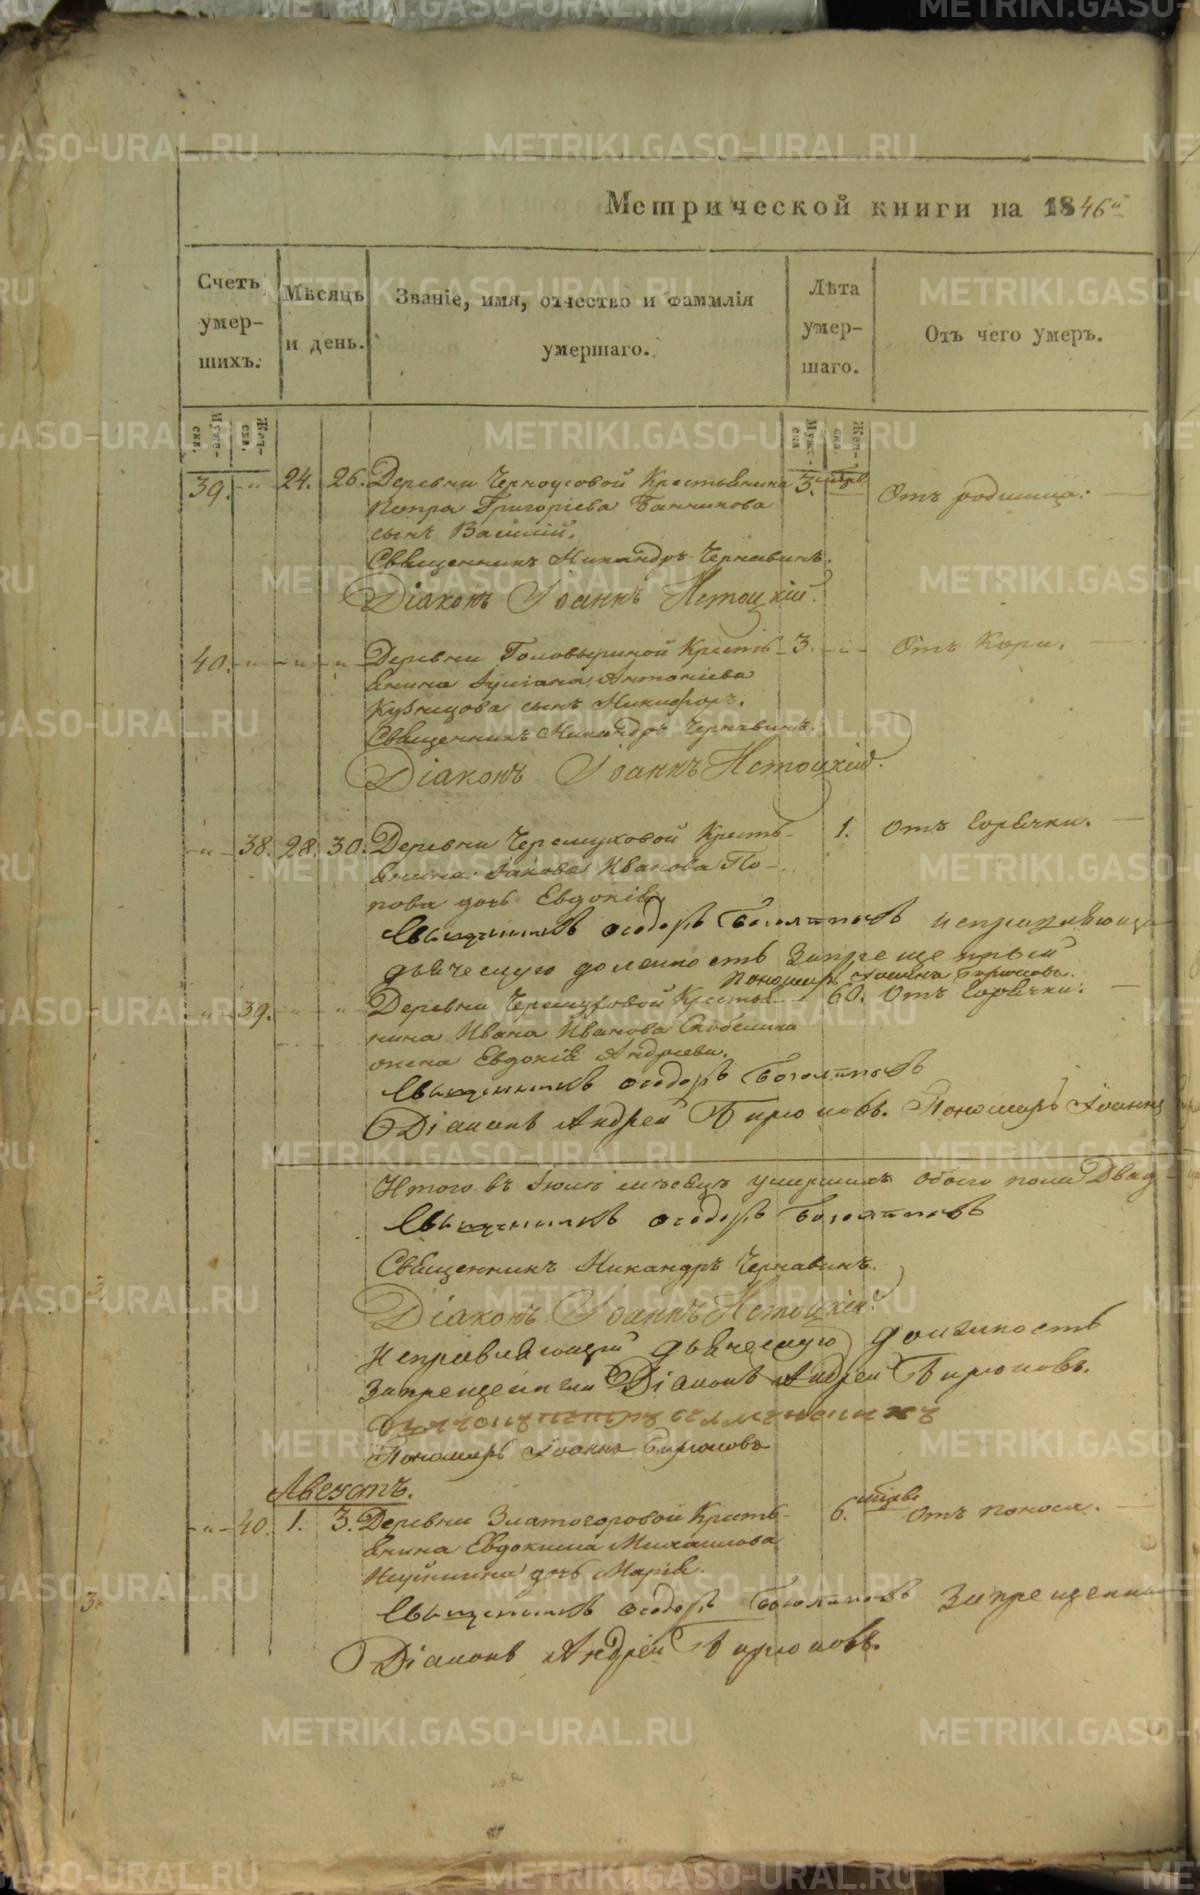 Метрической книги на 1846й
Счетъ умер-шихъ.
Мѣсяцъ и день.
Званіе, имя, отчество и фамилія умершаго.
Лѣта умер-шаго.
Отъ чего умеръ.
Муже-ска. Жен-ска. Муже-ска Жен-ска.
39. " 24. 26. Деревни Черноусовой Крестьянина 3. Отъ родимца.
Петра Григоріева Банникова
сынъ Василій.
Священникъ Никандръ Чернавинъ.
Діаконъ Іоаннъ Истоцкій.
40. " " " Деревни Головыриной Кресть- 3. " Отъ Кори.
янина Іуліана Антоніева
Кузнецова сынъ Никифоръ.
Священникъ Никандръ Чернавинъ.
Діаконъ Іоаннъ Истоцкій.
" 38. 28. 30. Деревни Черемуховой Кресть- 1. Отъ Горячки.
янина Іакова Иванова По-
пова дочь Евдокія.
Священникъ Ѳеодоръ Боголѣповъ исправляющи
дьяческую должность Запрещенный
Пономарь Іоаннъ Бирюковъ.
" 39. " " Деревни Черемуховой Крестья- 60. Отъ Горячки.
нина Ивана Иванова
жена Евдокія Андреева.
Священникъ Ѳеодоръ Боголѣповъ
Діаконъ Андрей Бирюковъ. Пономарь Іоаннъ
Итого въ Іюлѣ мѣсяцѣ умершихъ обоего пола Двад
Священникъ Ѳеодоръ Боголѣповъ
Священникъ Никандръ Чернавинъ.
Діаконъ Іоаннъ Истоцкій.
Исправляющій дьяческую должность
Запрещенный Діаконъ Андрей Бирюковъ.
Пономарь Іоаннъ Бирюковъ
Августъ.
" 40. 1. 3. Деревни Златогоровой Кресть- 6. Отъ поноса.
янина Евдокима Михаилова
дочь Марія.
Священникъ Ѳеодоръ Боголѣповъ Запрещенны
Діаконъ Андрей Бирюковъ.
METRIKI.GASO-URAL.RU